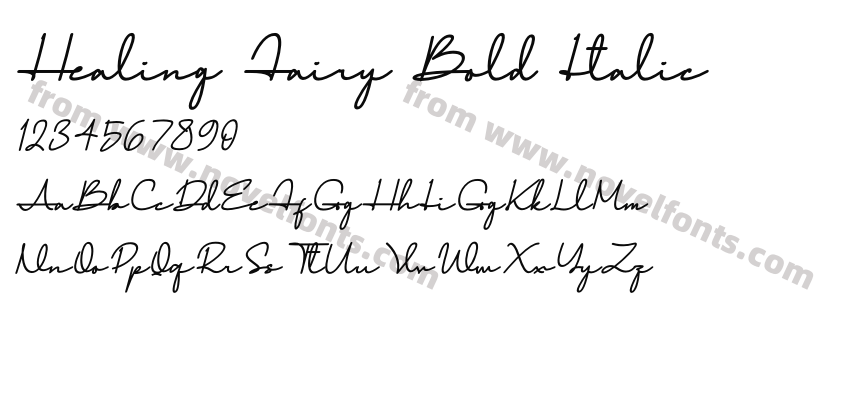 Healing Fairy Bold Italic
1234567890
AaBbCcDdEeFfGgHhIiGgKkLlMm
NnOoPpQqRrSsTtUuVvWwXxYyZz
from www.novelfonts.com
from www.novelfonts.com